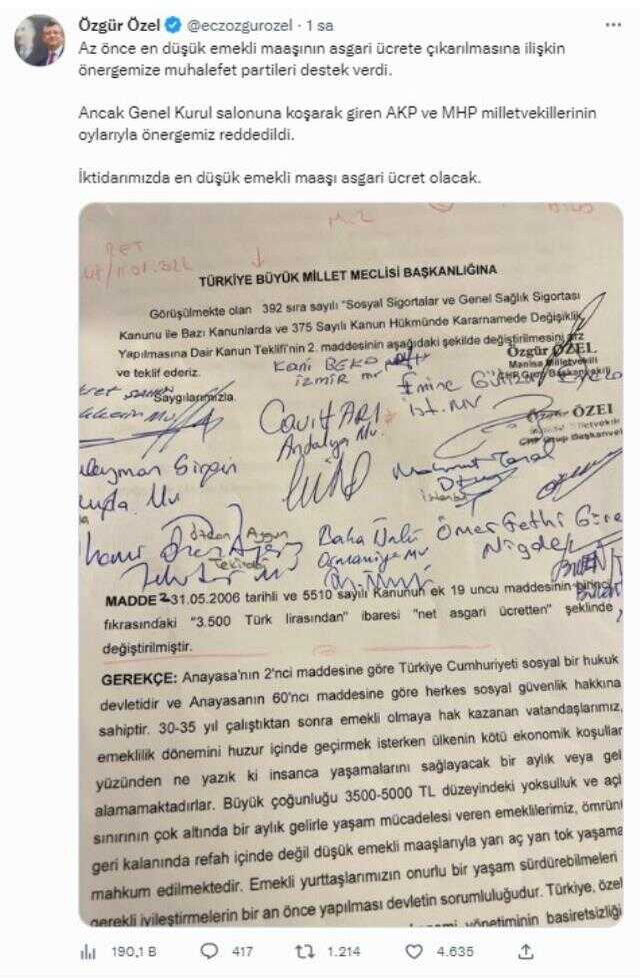 Özgür Özel @eczozgurozel · 1 sa
Az önce en düşük emekli maaşının asgari ücrete çıkarılmasına ilişkin
önergemize muhalefet partileri destek verdi.
Ancak Genel Kurul salonuna koşarak giren AKP ve MHP milletvekillerinin
oylarıyla önergemiz reddedildi.
İktidarımızda en düşük emekli maaşı asgari ücret olacak.
RET
TÜRKİYE BÜYÜK MİLLET MECLİSİ BAŞKANLIĞINA
Görüşülmekte olan 392 sıra sayılı "Sosyal Sigortalar ve Genel Sağlık Sigortası
Kanunu ile Bazı Kanunlarda ve 375 Sayılı Kanun Hükmünde Kararnamede Değişiklik
Yapılmasına Dair Kanun Teklifi'nin 2. maddesinin aşağıdaki şekilde değiştirilmesini arz
ve teklif ederiz.
Özgür ÖZEL
Manisa Milletvekili
CHP Grup Başkanvekili
Kani BEKO
İZMİR mv
Emine
İst. MV
Saygılarımızla.
Cavit ARI
Antalya Mv.
ÖZEL
Milletvekili
CHP Grup Başkanvekili
Mahmut Tanal
Baha Ünlü
Osmaniye MV
Ömer Fethi Güre
Niğde
MADDE 2 31.05.2006 tarihli ve 5510 sayılı Kanunun ek 19 uncu maddesinin birinci
fıkrasındaki "3.500 Türk lirasından" ibaresi "net asgari ücretten" şeklinde
değiştirilmiştir.
GEREKÇE: Anayasa'nın 2'nci maddesine göre Türkiye Cumhuriyeti sosyal bir hukuk
devletidir ve Anayasanın 60'ncı maddesine göre herkes sosyal güvenlik hakkına
sahiptir. 30-35 yıl çalıştıktan sonra emekli olmaya hak kazanan vatandaşlarımız,
emeklilik dönemini huzur içinde geçirmek isterken ülkenin kötü ekonomik koşullar
yüzünden ne yazık ki insanca yaşamalarını sağlayacak bir aylık veya gel
alamamaktadırlar. Büyük çoğunluğu 3500-5000 TL düzeyindeki yoksulluk ve açl
sınırının çok altında bir aylık gelirle yaşam mücadelesi veren emeklilerimiz, ömrünü
geri kalanında refah içinde değil düşük emekli maaşlarıyla yarı aç yarı tok yaşama
mahkum edilmektedir. Emekli yurttaşlarımızın onurlu bir yaşam sürdürebilmeleri
gerekli iyileştirmelerin bir an önce yapılması devletin sorumluluğudur. Türkiye, özel
yönetiminin basiretsizliği
190,1 B 417 1.214 4.635